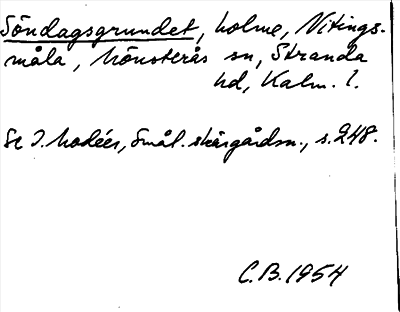 Söndagsgrundet, holme, Vitings-
måla, Mönsterås sn, Stranda
hd, Kalm. l.
Se I. Modéer, Smål. skärgårdsn., s. 248.
C.B. 1954